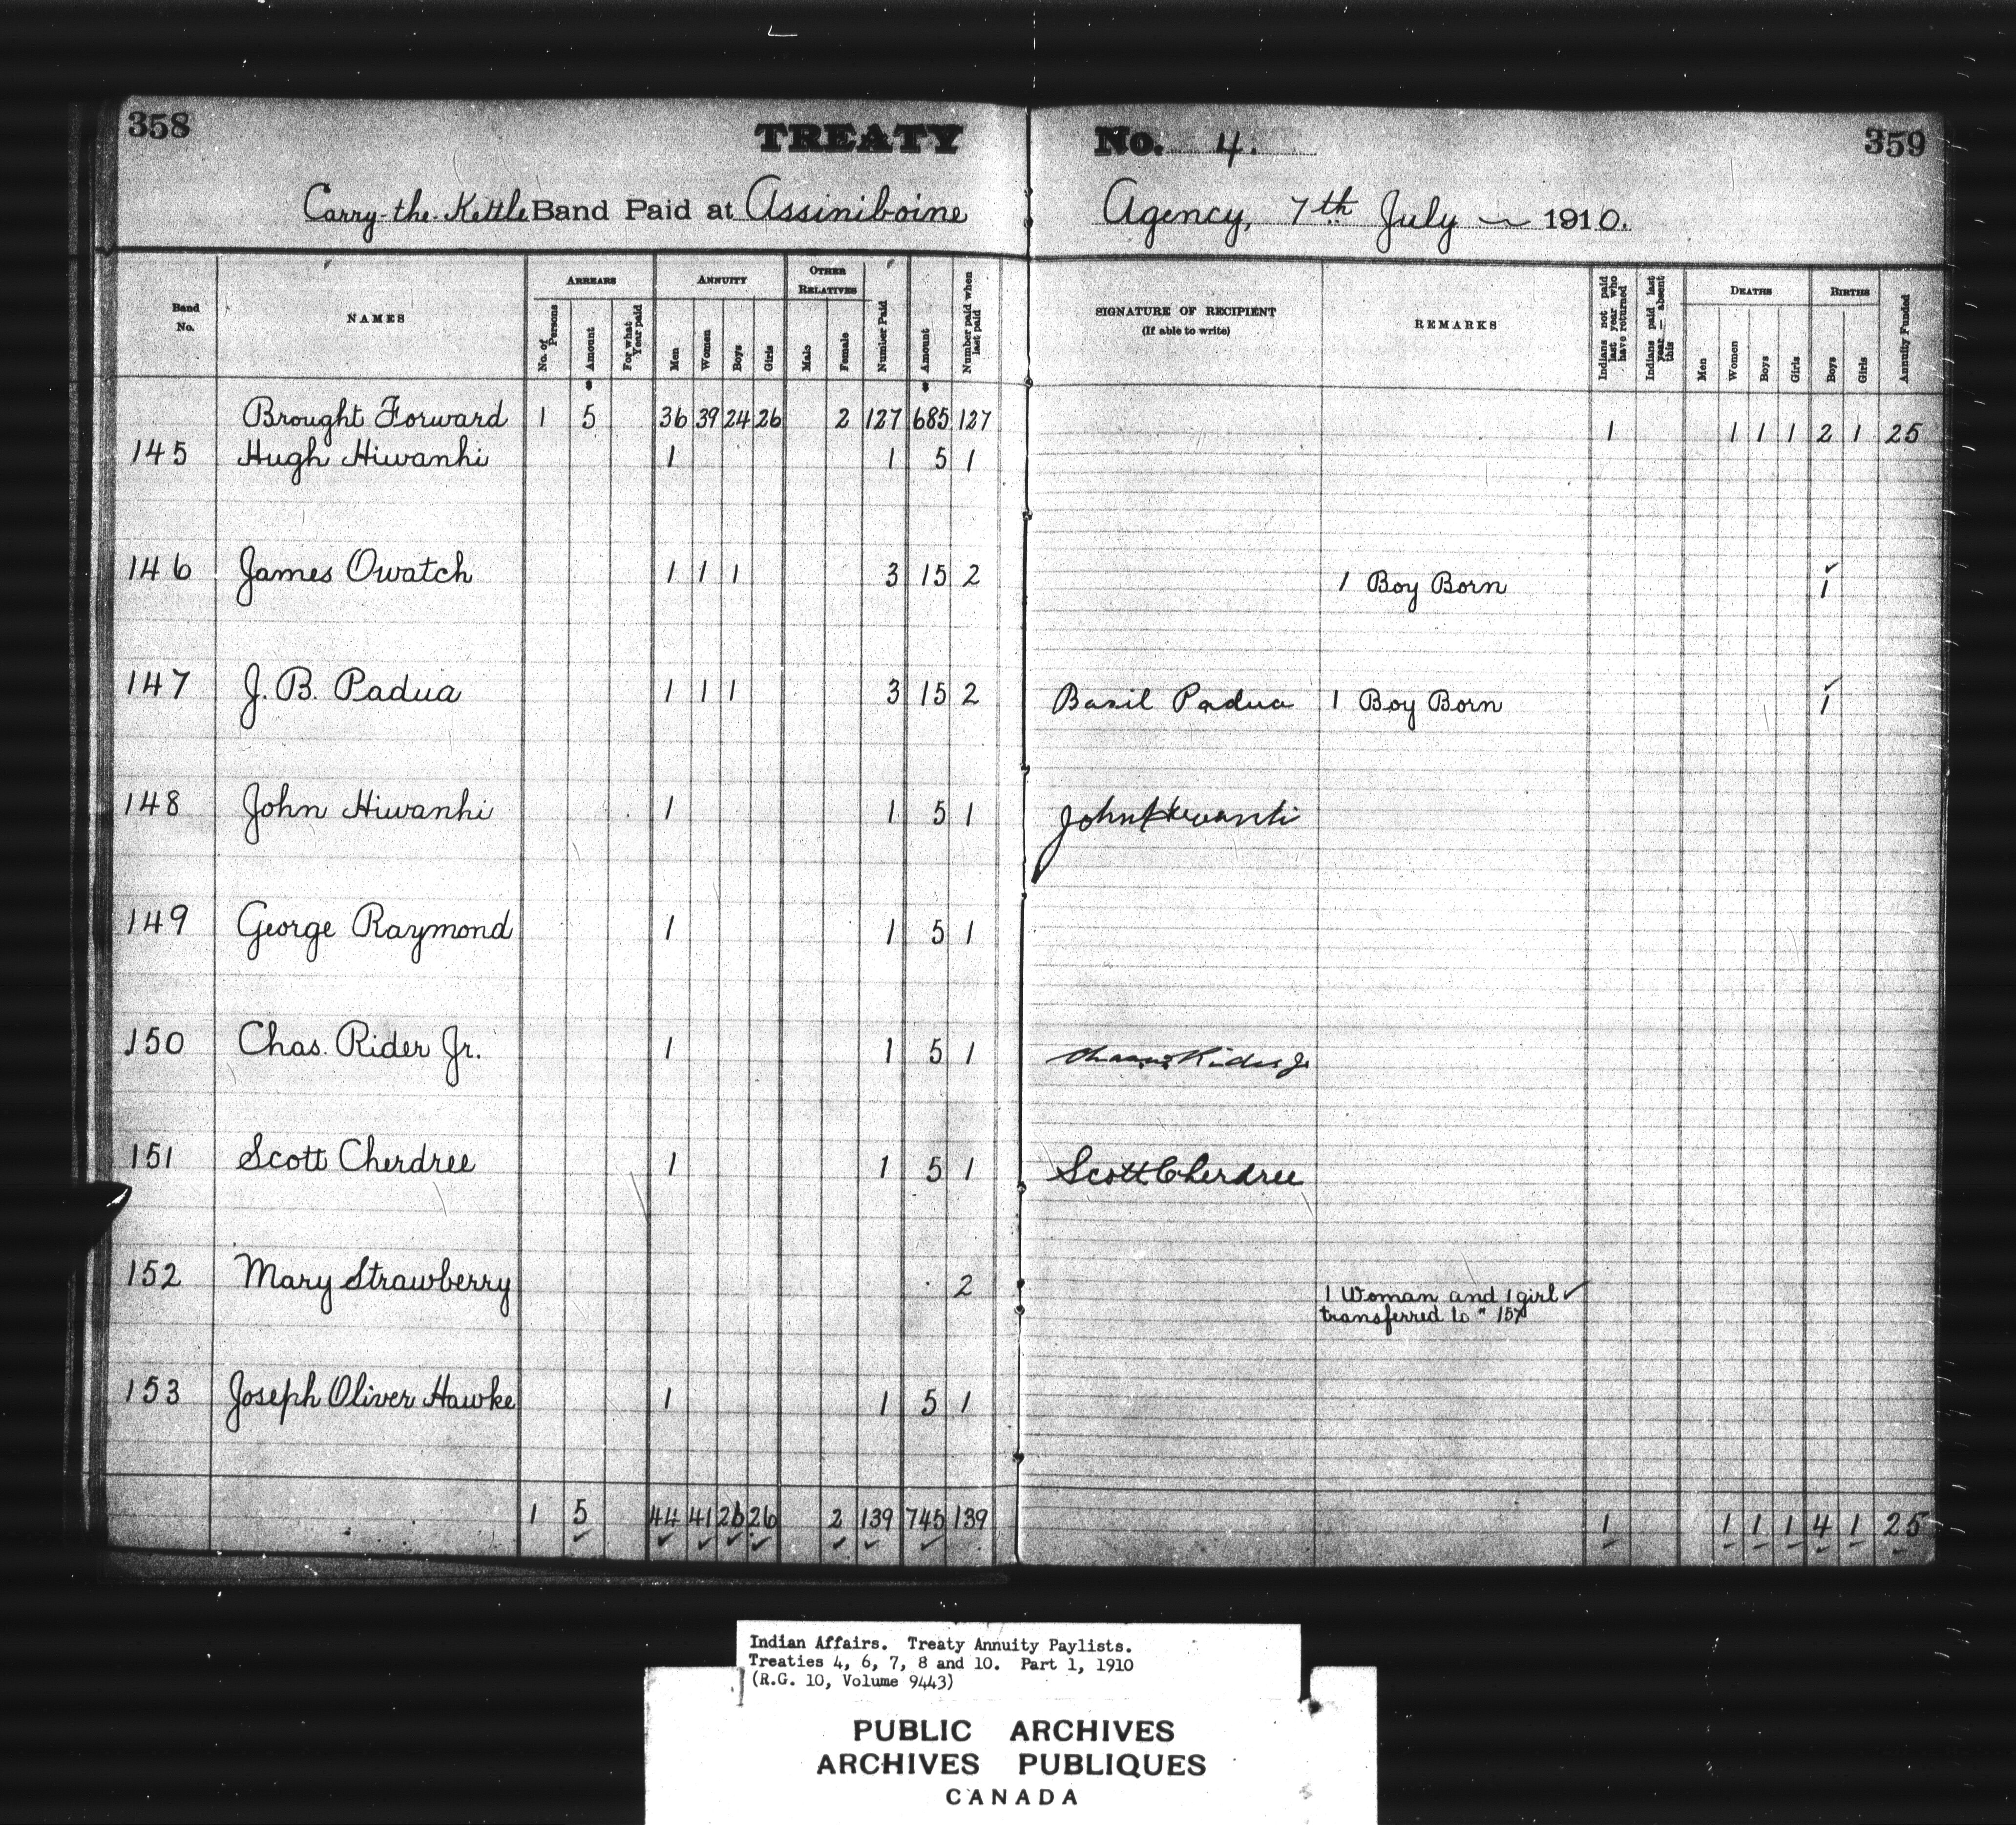 358 TREATY No. 4. 359
Carry-the-Kettle Band Paid at Assiniboine Agency, 7th July 1910.
Band No.
NAMES
ARREARS
No. of Persons
Amount
For what Year paid
ANNUITY
Men
Women
Boys
Girls
OTHER RELATIVES
Male
Female
Number Paid
Amount
Number paid when last paid
SIGNATURE OF RECIPIENT
(If able to write)
REMARKS
Indians not paid last year who have returned
Indians paid last year — absent this
DEATHS
Men
Women
Boys
Girls
BIRTHS
Boys
Girls
Annuity Funded
Brought Forward 1 5 36 39 24 26 2 127 685 127 1 1 1 1 2 1 25
145 Hugh Hiwanhi 1 1 5 1
146 James Owatch 1 1 1 3 15 2 1 Boy Born 1
147 J. B. Padua 1 1 1 3 15 2 Basil Padua 1 Boy Born 1
148 John Hiwanhi 1 1 5 1 John Hiwanhi
149 George Raymond 1 1 5 1
150 Chas. Rider Jr. 1 1 5 1 Rider Jr
151 Scott Cherdree 1 1 5 1 Scott Cherdree
152 Mary Strawberry 2 1 Woman and 1 girl
transferred to " 157
153 Joseph Oliver Hawke 1 1 5 1
1 5 44 41 26 26 2 139 745 139 1 1 1 1 4 1 25
Indian Affairs. Treaty Annuity Paylists.
Treaties 4, 6, 7, 8 and 10. Part 1, 1910
(R.G. 10, Volume 9443)
PUBLIC ARCHIVES
ARCHIVES PUBLIQUES
CANADA